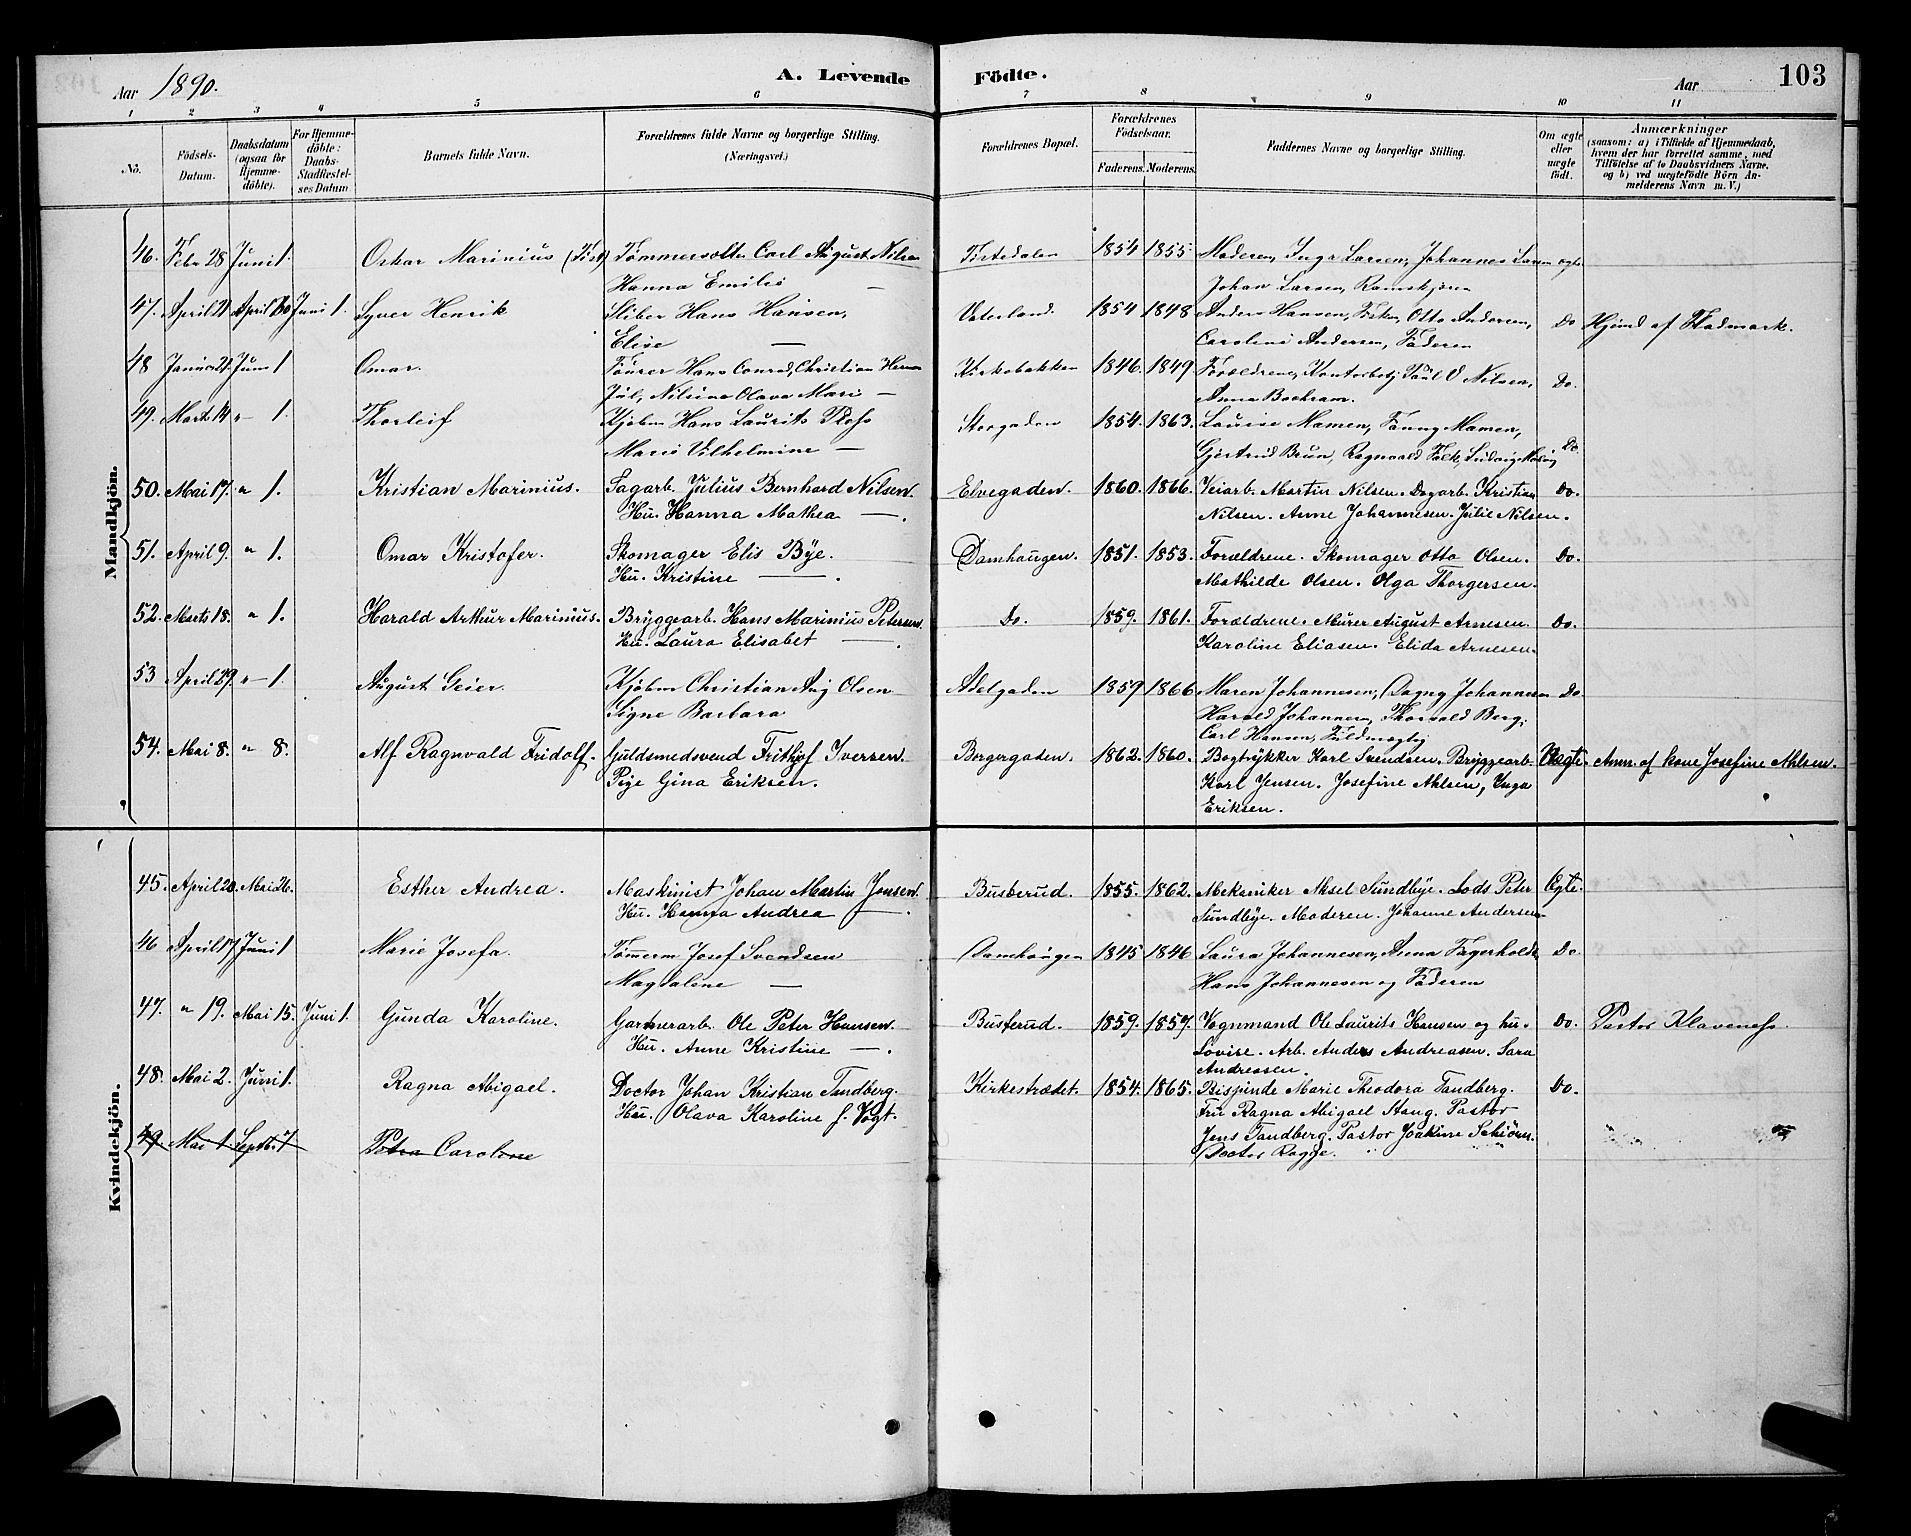 Aar 1890. A. Levende Födte. Aar 103
1 2 3 4 5 6 7 8 9 10 11
Nö. Födsels-Datum. Daabsdatum (ogsaa for Hjemme-döbte). For Hjemme-döbte: Daabs-Stadfæstel-ses Datum Barnets fulde Navn. Forældrenes fulde Navne og borgerlige Stilling. (Næringsvei.) Forældrenes Bopæl. Forældrenes Födselsaar. Faderens. Moderens. Faddernes Navne og borgerlige Stilling. Om ægte eller uægte födt. Anmærkninger (saasom: a) i Tilfælde af Hjemmedaab, hvem der har forrettet samme, med Tilföielse af to Daabsvidners Navne. og b) ved uægtefödte Börn An-melderens Navn m. V.)
Mandkjön.
46. Febr 28 Juni 1. Oskar Marinius Carl August Nilsen Tistedalen 1854 1855. Moderen, Inga Larsen, Johannes Larsen ægte
Hanna Emilie — Johan Larsen,
47. April 21 April 30 Juni 1. Syver Henrik Sliber Hans Hansen, Vaterland. 1854 1848 Anders Hansen, Otto Andersen, Do Hjemd af Fladmark.
Elise — Caroline Andersen, Faderen
48 Januar 21. Juni 1 Omar. Hans Conrad, Christian Kirkebakken 1846. 1849. Forældrene, Kontorbetj Paul O Nilsen, Do.
Jul, Nilsine Olava Mari — Anna
49. Marts 14 " 1. Thorleif Kjøbm Hans Laurits Storgaden 1854. 1863. Louise Mamen, Fanny Mamen,
Marie Vilhelmine — Gjertrud Brun, Ragnvald Falk, Ludvig Do.
50. Mai 17. " 1. Kristian Marinius. Sagarb. Julius Bernhard Nilsen. Elvegaden. 1860. 1866. Veiarb. Martin Nilsen. Dagarb. Kristian Do.
Hu. Hanna Mathea —. Nilsen. Anne Johannesen. Julie Nilsen.
51. April 9. " 1. Omar Kristofer. Skomager Elis Bye. Damhaugen. 1851. 1853. Forældrene. Skomager Otto Olsen. Do.
Hu. Kristine —. Mathilde Olsen. Olga Thorgersen.
52. Marts 18. " 1. Harald Arthur Marinius. Bryggearb. Hans Marinius Petersen. Do. 1859. 1861. Forældrene. Murer August Arnesen. Do.
Hu. Laura Elisabet —. Karoline Eliasen. Elida Arnesen.
53 April 29. " 1. August Geier. Kjøbm Christian Aug Olsen Adelgaden 1859 1866 Maren Johannesen, Dagny Johannesen Do.
Signe Barbara Harald Johannesen, Thorvald Berg,
Carl Hansen, Fuldmægtig
54. Mai 8. " 8. Alf Ragnvald Fridolf. Guldsmedsvend Frithjof Iversen. Borgergaden. 1862. 1860. Bogtrykker Karl Svendsen. Bryggearb. Uægte. Anm. af kone Josefine Ahlsen.
Pige Gina Eriksen. Karl Jensen. Josefine Ahlsen, Inga
Eriksen.
Kvindekjön.
45. April 20. Mai 26. Esther Andrea. Maskinist Johan Martin Jensen. Busterud. 1855. 1862. Mekaniker Aksel Sundbye. Lods Peter Ægte.
Hu. Hanna Andrea —. Sundbye. Moderen. Johanne Andersen.
46 April 17. Juni 1 Marie Josefa. Tømmerm Josef Svendsen Damhaugen 1845 1846 Laura Johannesen, Anna Fagerholdt Do.
Magdalene — Hans Johannesen og Faderen
47. " 19. Mai 15. Juni 1. Gunda Karoline. Garnerarb. Ole Peter Hansen. Busterud. 1859. 1857. Vognmand Ole Laurits Hansen og hu. Do. Pastor Klaveness.
Hu. Anne Kristine —. Lovise. Arb. Anders Andreasen. Sara
Andreasen.
48. Mai 2. Juni 1. Ragna Abigael. Doctor Johan Kristian Tandberg. Kirkestrædet. 1854. 1865. Bispinde Marie Theodora Tandberg. Do.
Hu. Olava Karoline f. Vogt. Fru Ragna Abigael Stang. Pastor
Jens Tandberg. Pastor Joakim
49 Mai 1 Septb. 7 Petra Caroline Doctor Rogge.